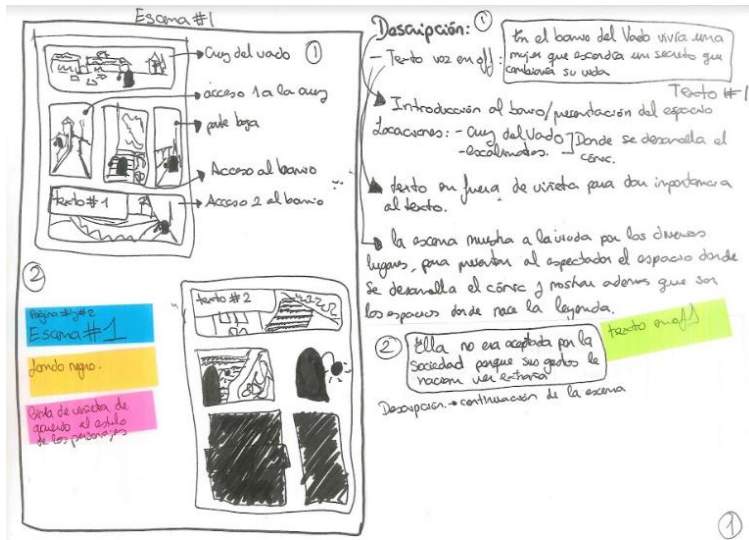 Escena #1
Cruz del vado ①
acceso 1 a la cruz
parte baja
Acceso al barrio
Acceso 2 al barrio
texto #1
②
Página #1y#2
Escena #1
fondo negro.
Borde de viñeta de
acuerdo al estilo
de los personajes
texto #2
Descripción: ①
- Texto voz en off:
En el barrio del Vado vivía una
mujer que escondía un secreto que
cambiaría su vida
Texto #1
Introducción al barrio/presentación del espacio
Locaciones: - Cruz del Vado
- escalinatas.
Donde se desarrolla el
cómic.
texto en fuera de viñeta para dar importancia
al texto.
la escena muestra a la viuda por los diversos
lugares, para presentar al espectador el espacio donde
se desarrolla el cómic y mostrar además que son
los espacios donde nace la leyenda.
②
Ella no era aceptada por la
Sociedad porque sus gestos le
hacían ver extraña
texto en off
Descripción → continuación de la escena
①